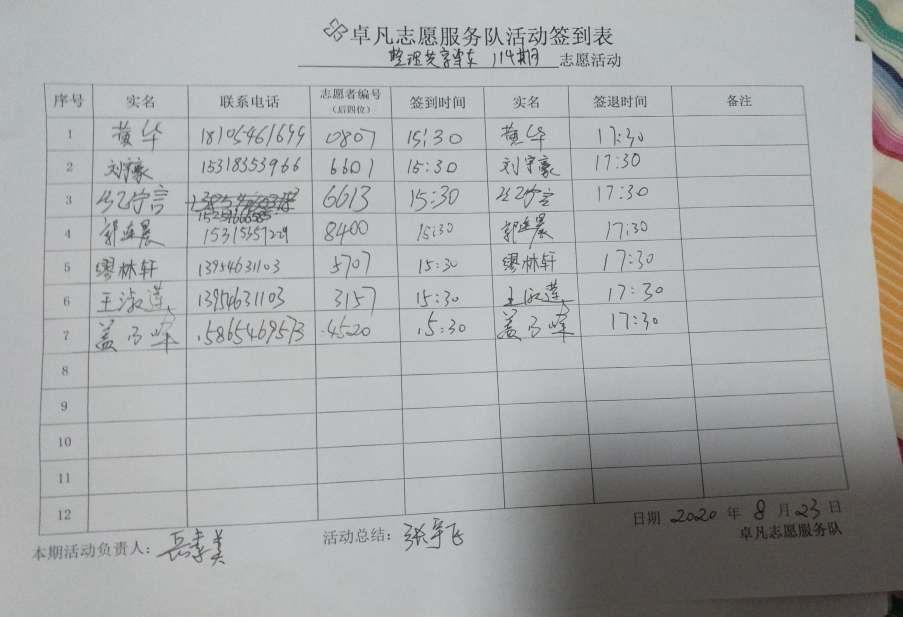 卓凡志愿服务队活动签到表
114期 志愿活动
序号 实名 联系电话 志愿者编号（后四位） 签到时间 实名 签退时间 备注
1 黄华 18105461699 0807 15:30 黄华 17:30
2 刘宇豪 15318353966 6601 15:30 刘宇豪 17:30
3 6613 15:30 17:30
4 郭连晨 8400 15:30 郭连晨 17:30
5 缪林轩 13954631103 5707 15:30 缪林轩 17:30
6 王淑莲 13954631103 3157 15:30 王淑莲 17:30
7 盖 峰 15865469573 4520 15:30 盖 峰 17:30
8
9
10
11
12
日期 2020 年 8 月 23 日
本期活动负责人： 岳素美 活动总结： 张宇飞 卓凡志愿服务队